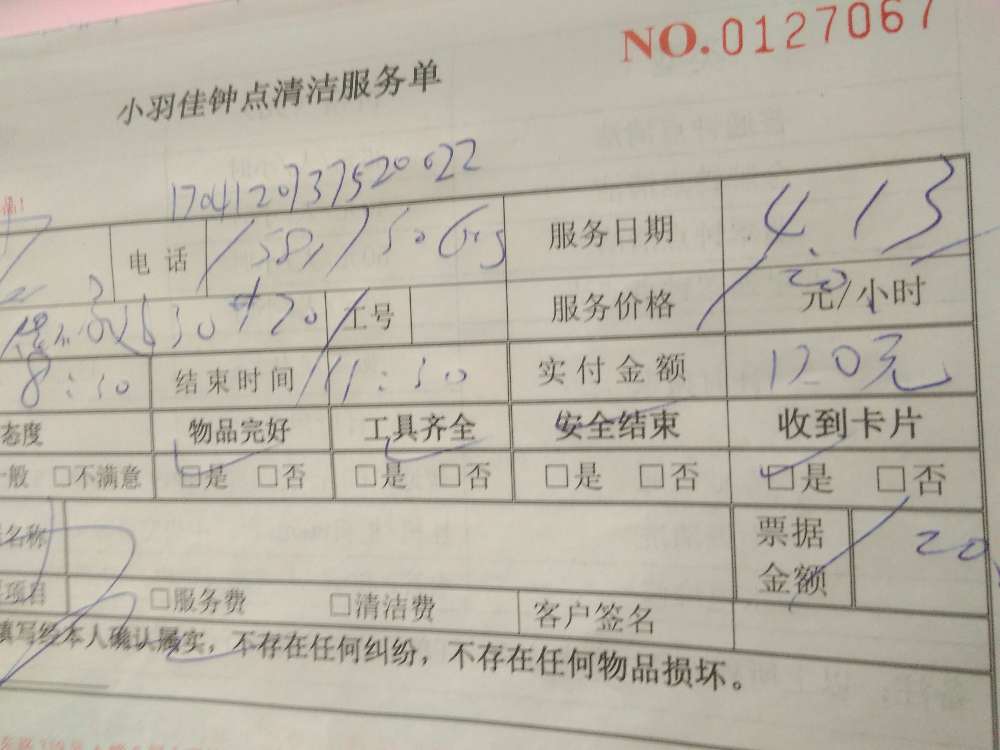 NO.0127067
小羽佳钟点清洁服务单
1704120737520022
电话 服务日期 4.13
工号 服务价格 20元/小时
8:30 结束时间 11:30 实付金额 120元
态度 物品完好 工具齐全 安全结束 收到卡片
一般 □不满意 □是 □否 □是 □否 □是 □否 □是 □否
名称 票据金额 20
项目 □服务费 □清洁费 客户签名
填写经本人确认属实，不存在任何纠纷，不存在任何物品损坏。